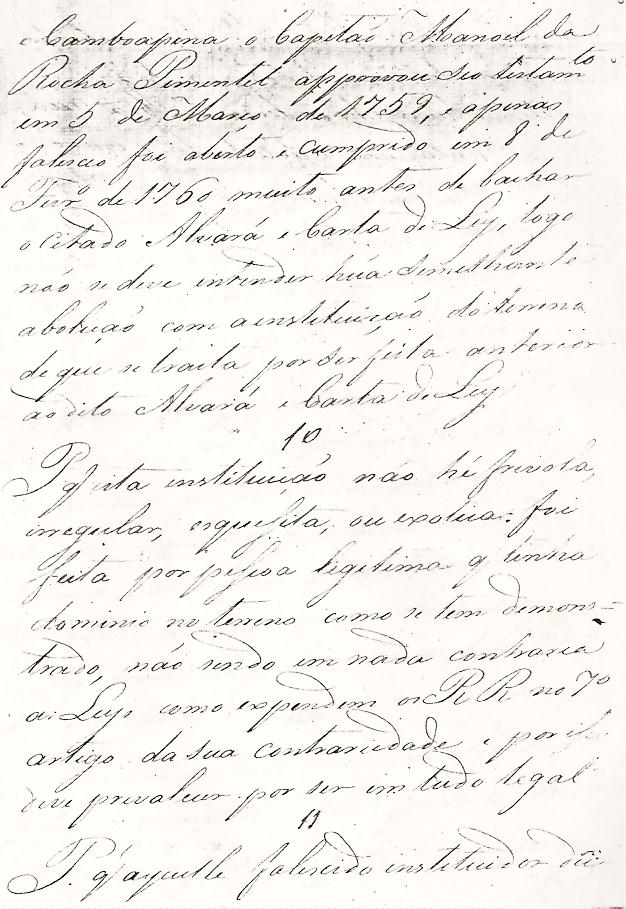 Camboapina o Capitaõ Manoel da
Rocha Pimentel approvou seo testam.to
em 5 de Março de 1759, e apenas
faleceo foi aberto e cumprido em 8 de
Fevr.o de 1760 muito antes de bachar
o citado Alvará e Carta de Ley, logo
não se deve entender húa semelhante
aboluçaõ com a instituiçaõ do terreno
de que se tracta por ser feita anterior
ao dito Alvará e Carta de Ley
10
P. q' esta instituiçaõ naõ hé frivola,
irregular, esquesita, ou exotica: foi
feita por pessoa legitima q' tinha
dominio no terreno como se tem demons=
trado, não sendo em nada contraria
as Leys como expendem os R R no 7o
artigo da sua contrariedade e por isso
deve prevalecer por ser em tudo legal
11
P. q' aquelle falescido instituidor